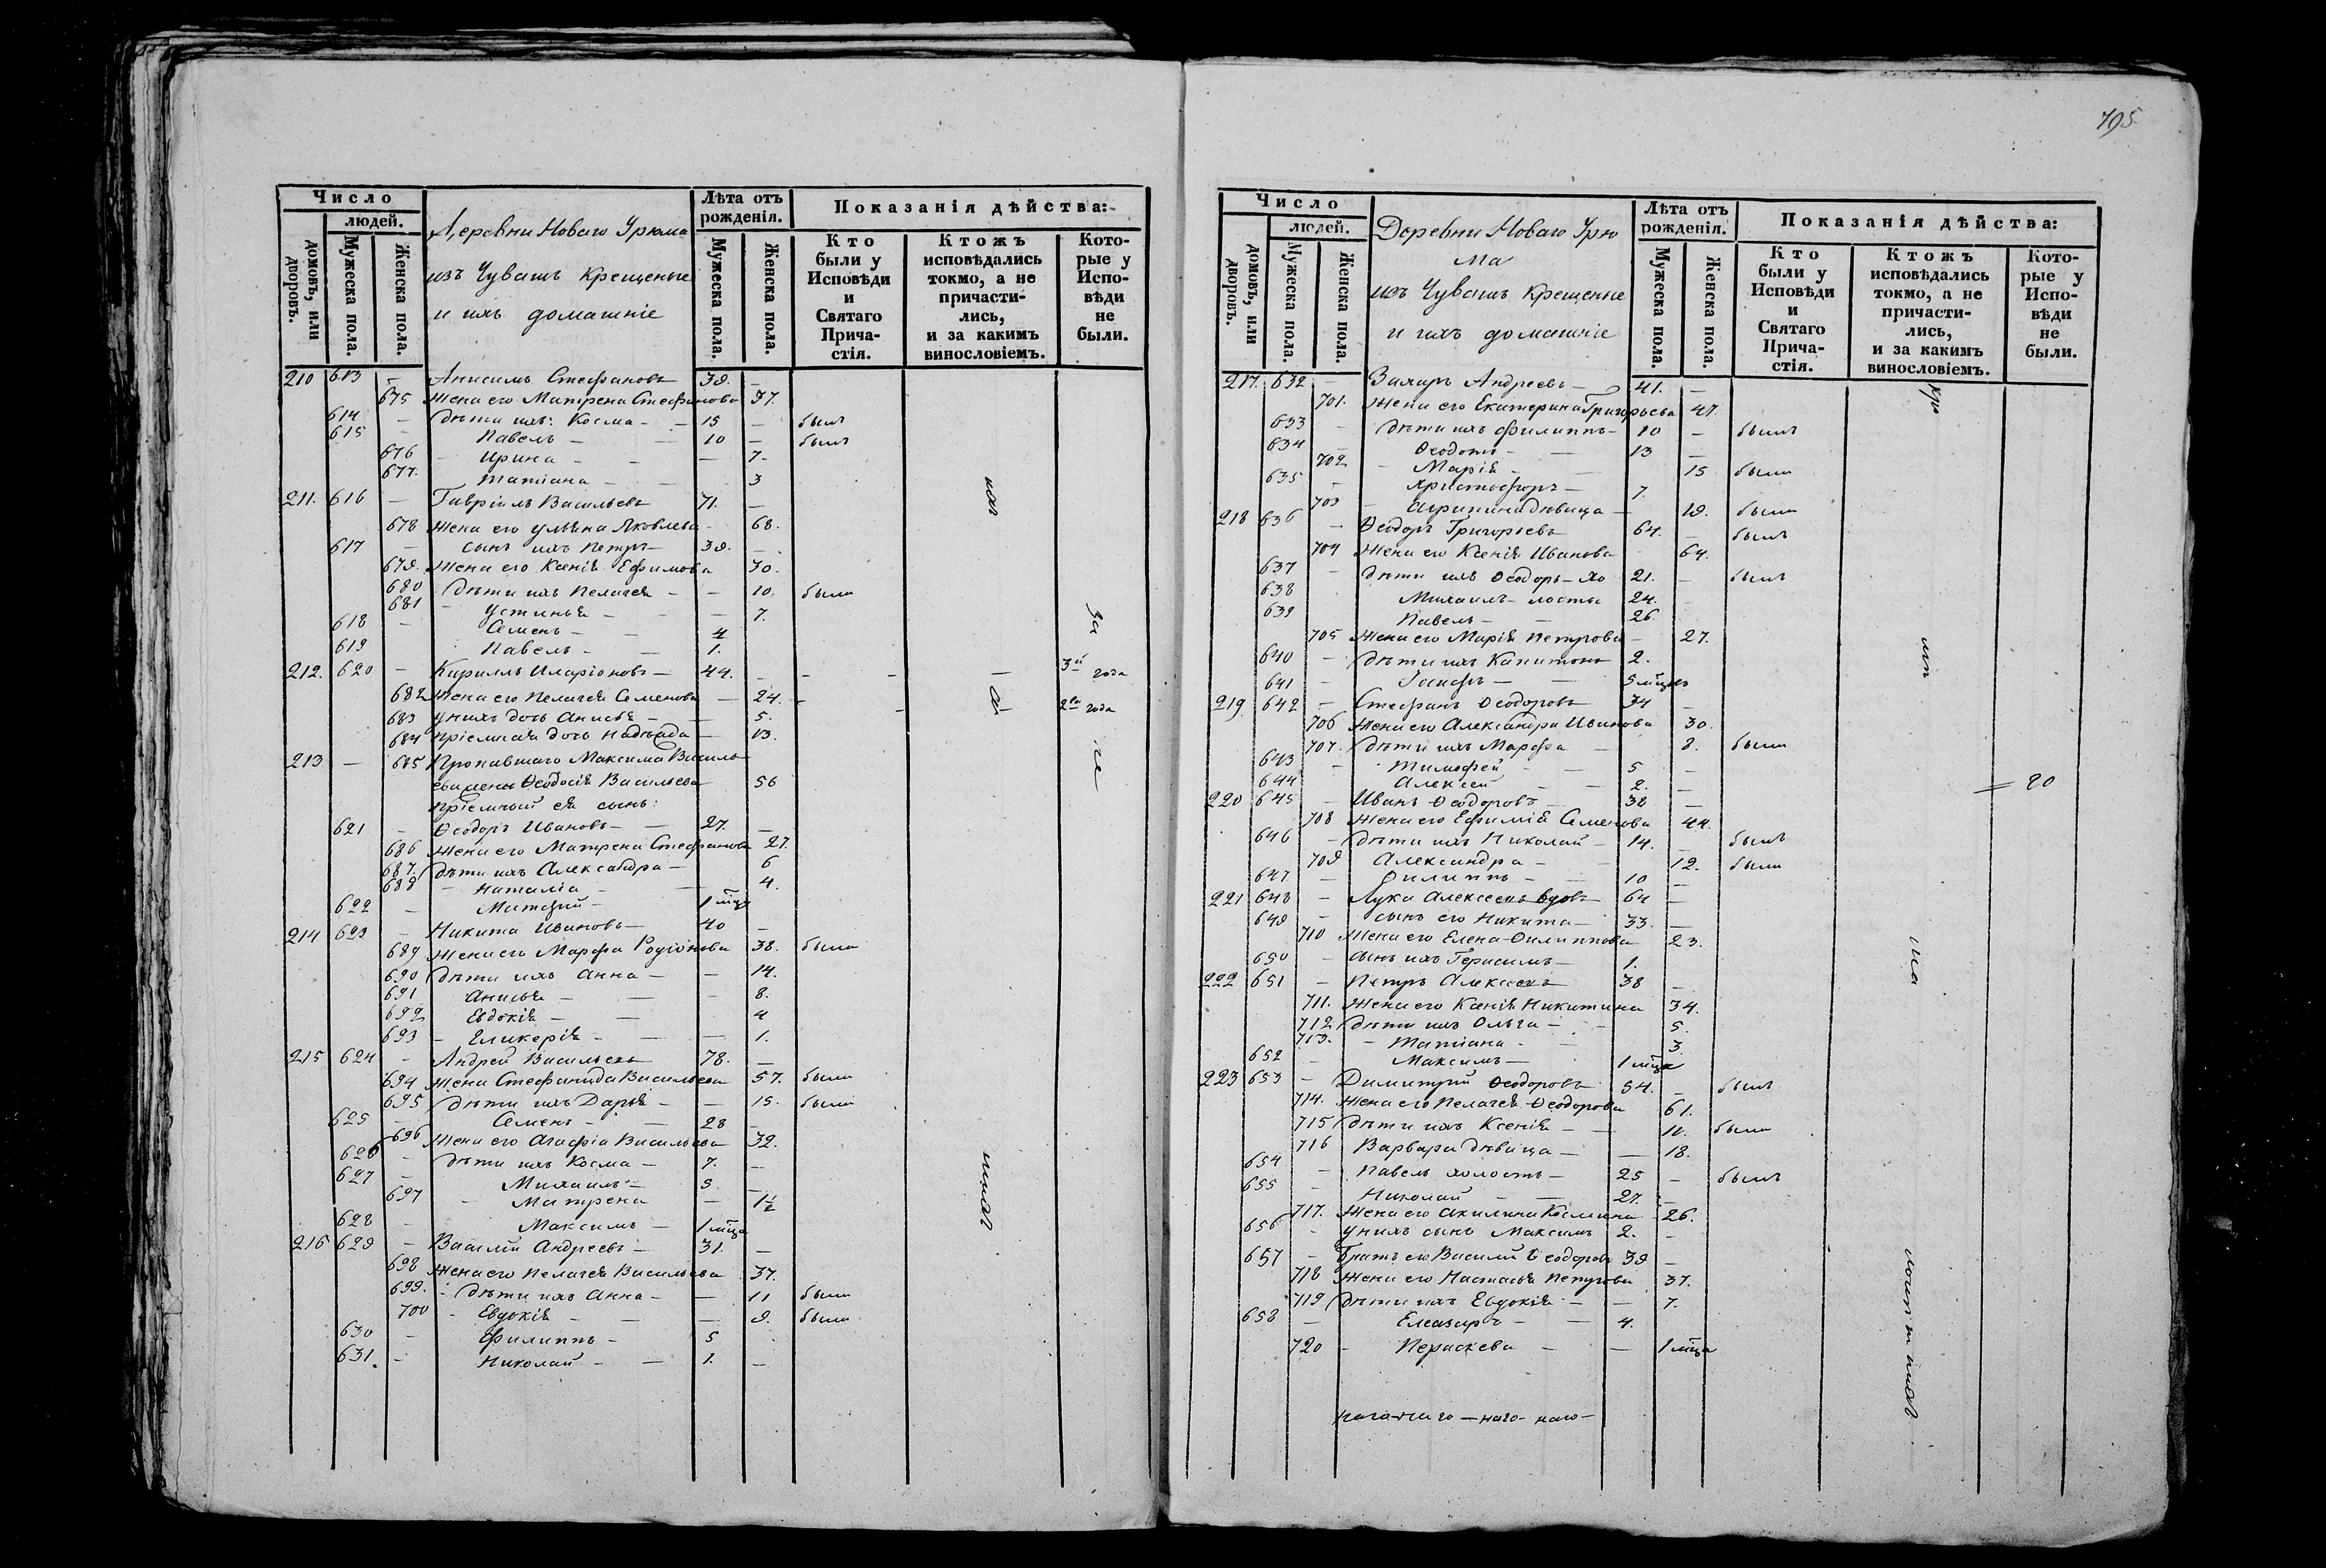 Число
людей.
домовъ, или дворовъ.
Мужеска пола.
Женска пола.
Деревни Новаго Урюма
изъ Чувашъ крещеные
и ихъ домашніе
Лѣта отъ рожденія.
Мужеска пола.
Женска пола.
Показанія дѣйства:
Кто были у Исповѣди и Святаго Прича-стія.
Ктожъ исповѣдались токмо, а не причасти-лись, и за какимъ винословіемъ.
Кото-рые у Испо-вѣди не были.
210 613 — Анисимъ Стефановъ 39. —
675 жена его Матрена Стефанова 37.
614 — дѣти ихъ: Косма — 15 — былъ
615 — Павелъ — 10 — былъ
676 — Ирина — — 7.
677. Татіана — 3
211. 616 — Гавріилъ Васильевъ 71. —
678 жена его Ульяна Яковлева 68.
617 — сынъ ихъ Петръ — 39. —
679. жена его Ксенія Ефимова 30.
680 дѣти ихъ Пелагея — — 10. была
681 — Устинья — — 7.
618 — Семенъ — — 4
619 Павелъ — — 1.
212. 620 — Кириллъ Иларіоновъ — 44. — 3й года
682 жена его Пелагея Семенова — 24. — 2го года
683 у нихъ дочь Анисья — — 5.
684 пріемная дочь Надежда — 13.
213 — 685 Пропавшаго Максима Василь
ева жена Ѳеодосія Васильева 56
пріемный ея сынъ:
621 — Ѳеодоръ Ивановъ — — 27. —
686 жена его Матрена Стефанова 27.
687. дѣти ихъ Александра — 6
688 — Наталіа — — 4.
622 — Матфій — 1 мца
214 623 — Никита Ивановъ — 40 —
689 жена его Марфа Родіонова 38. была
690 дѣти ихъ Анна — — 14.
691 Анисья — — 8.
692 Евдокія — — 4
693 — Гликерія — — 1.
215 624 — Андрей Васильевъ 78. —
694 жена Стефанида Васильева 57. была
695 дѣти ихъ Дарья — — 15. была
625 — Семенъ — 28 —
696 жена его Агафіа Васильева 32.
626 — дѣти ихъ Косма — 7. —
627 — Михаилъ — 5 —
697 — Матрена — 1½
628 — Максимъ — 1 мца
216 629 — Василій Андреевъ — 31. —
698 жена его Пелагея Васильева 37.
699. — дѣти ихъ Анна — — 11 была
700 — Евдокія — — 9. была
630 — Филиппъ — 5
631. — Николай — — 1. —
за
не
795
Число
людей.
домовъ, или дворовъ.
Мужеска пола.
Женска пола.
Деревни Новаго Урю
ма
изъ Чувашъ крещеные
и ихъ домашніе
Лѣта отъ рожденія.
Мужеска пола.
Женска пола.
Показанія дѣйства:
Кто были у Исповѣди и Святаго Прича-стія.
Ктожъ исповѣдались токмо, а не причасти-лись, и за какимъ винословіемъ.
Кото-рые у Испо-вѣди не были.
217. 632 — Захаръ Андреевъ — 41. —
701. жена его Екатерина Григорьева 47.
633 — дѣти ихъ Филиппъ — 10 — былъ
634 — Ѳеодотъ — — 13 —
702 — Марія — 15 была
635 — Христофоръ — 7.
703 — Агрипина дѣвица — 19. была
218 636 — Ѳеодоръ Григорьевъ 64. — былъ
704 жена его Ксенія Иванова 64.
637 — дѣти ихъ Ѳеодоръ — хо 21. — былъ
638 Михаилъ — лосты 24. —
639 Павелъ — — 26.
705 жена его Марія Петрова — 27.
640 — дѣти ихъ Капитонъ 2.
641 — Іосифъ — — 5 мцевъ
219 642 — Стефанъ Ѳеодоровъ 34 —
706 жена его Александра Иванова 30.
707. дѣти ихъ Марфа — 8. была
643 — Тимофей — — 5 —
644 Алексей — — 2. —
220 645 — Иванъ Ѳеодоровъ — 38 —
708 жена его Ефимія Семенова 44.
646 — дѣти ихъ Николай — 14. — былъ
709 Александра — — 12. была
647 — Филиппъ — — 10 —
221 648 — Лука Алексеевъ вдовъ 64 —
649 — сынъ его Никита — 33. —
710 жена его Елена Филиппова 23.
650 — сынъ ихъ Герасимъ — 1.
222 651 — Петръ Алексеевъ 38 —
711. жена его Ксенія Никитина 34.
712 дѣти ихъ Ольга — 5.
713. — Татіана — — 3.
652 — Максимъ — 1 мца
223 653 — Димитрій Ѳеодоровъ 54. — былъ
714. жена его Пелагея Ѳеодорова 61.
715 дѣти ихъ Ксенія — — 11. была
716 Варвара дѣвица — — 18.
654 — Павелъ холостъ — 25 — былъ
655 — Николай — — 27. —
717. жена его Акилина Космина 26.
656 — у нихъ сынъ Максимъ 2. —
657 — Братъ его Василій Ѳеодоровъ 39 —
718 жена его Настасья Петрова 37.
719 дѣти ихъ Евдокія — — 7.
658 — Елеазаръ — — 4.
720 — Параскева — — 1 мца
= 20